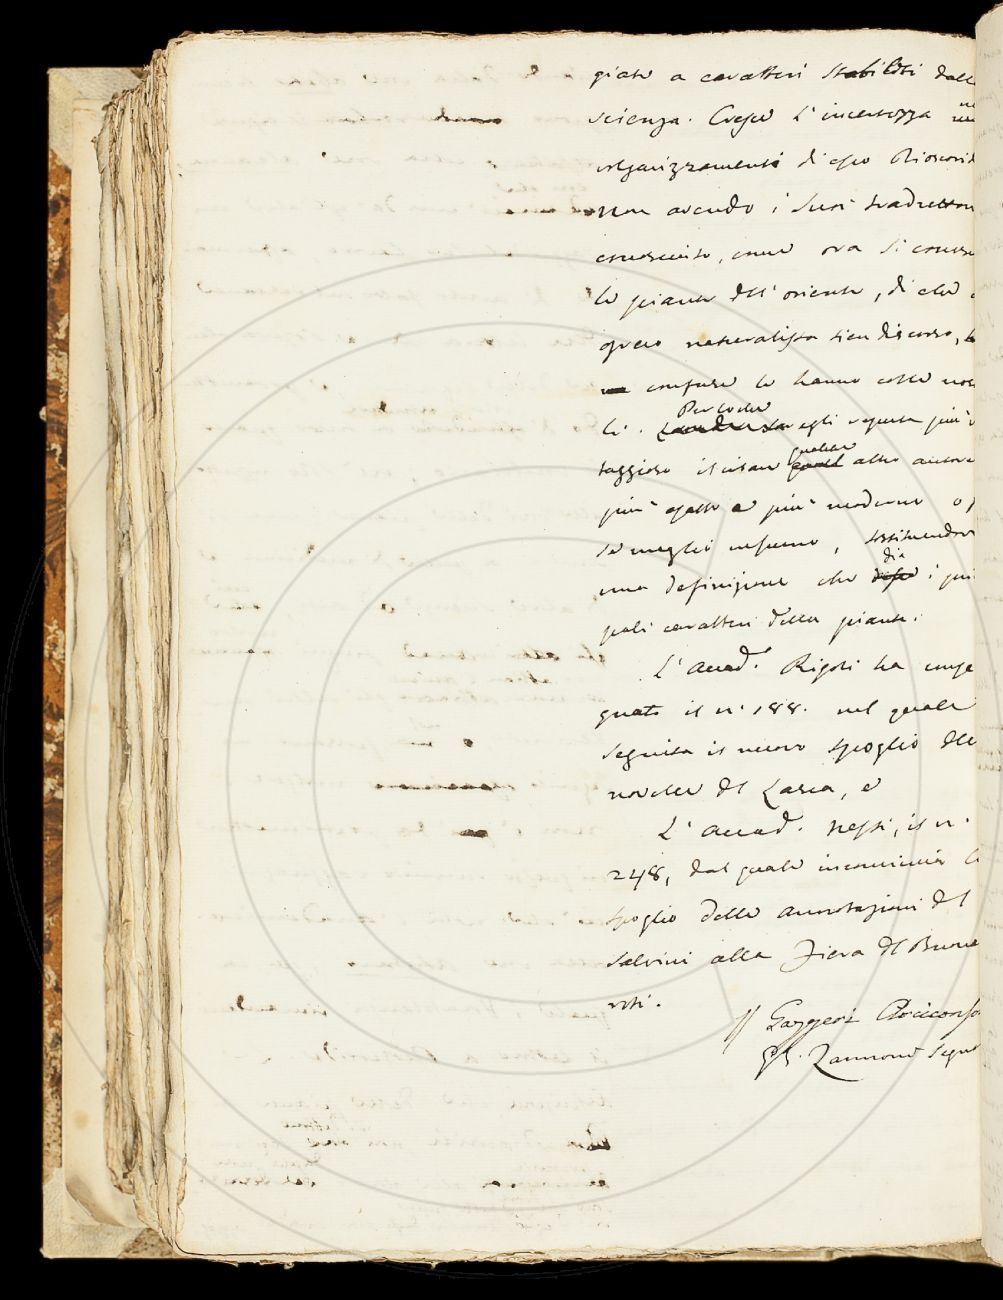 giato a caratteri stabiliti dall
scienza. Cresce l'incertezza ne
organizzamenti di esso Dioscorid
non avendo i suoi traduttori
conosciuto, come ora si conosc
le piante dell'oriente, di che
greco naturalista tien discorso, e
confuse le hanno colle nos
li. Perloche egli reputa più v
taggioso il citare qualche altro autore
più esatto e più moderno o p
se meglio nessuno, sostituendov
una definizione che dia i prin
pali caratteri della pianta.
L'Accad. Rigoli ha conse
gnato il n. 188. nel quale
seguita il nuovo spoglio delle
novelle del Lasca, e
L'Accad. Nesti, il n.
248, dal quale incomincia l
spoglio delle annotazioni del
Salvini alla Fiera del Buona
roti.
Gazzeri Arciconso
G B. Zannoni Segre